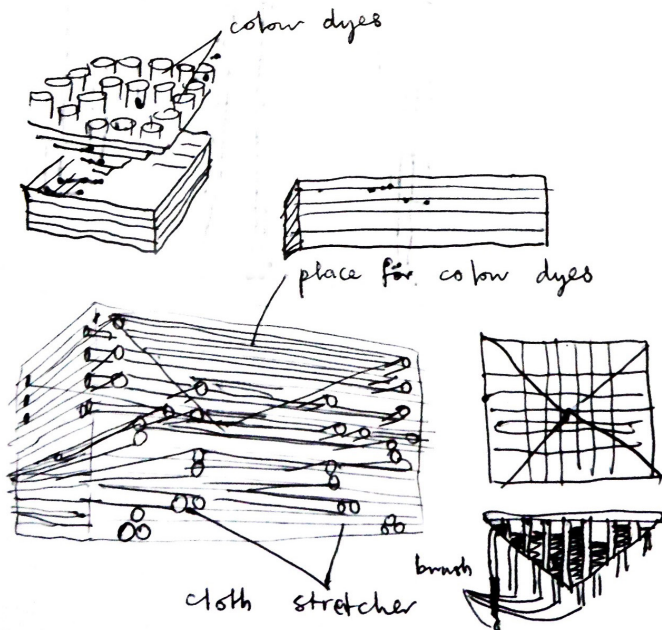 colour dyes
place for colour dyes
brush
cloth stretcher